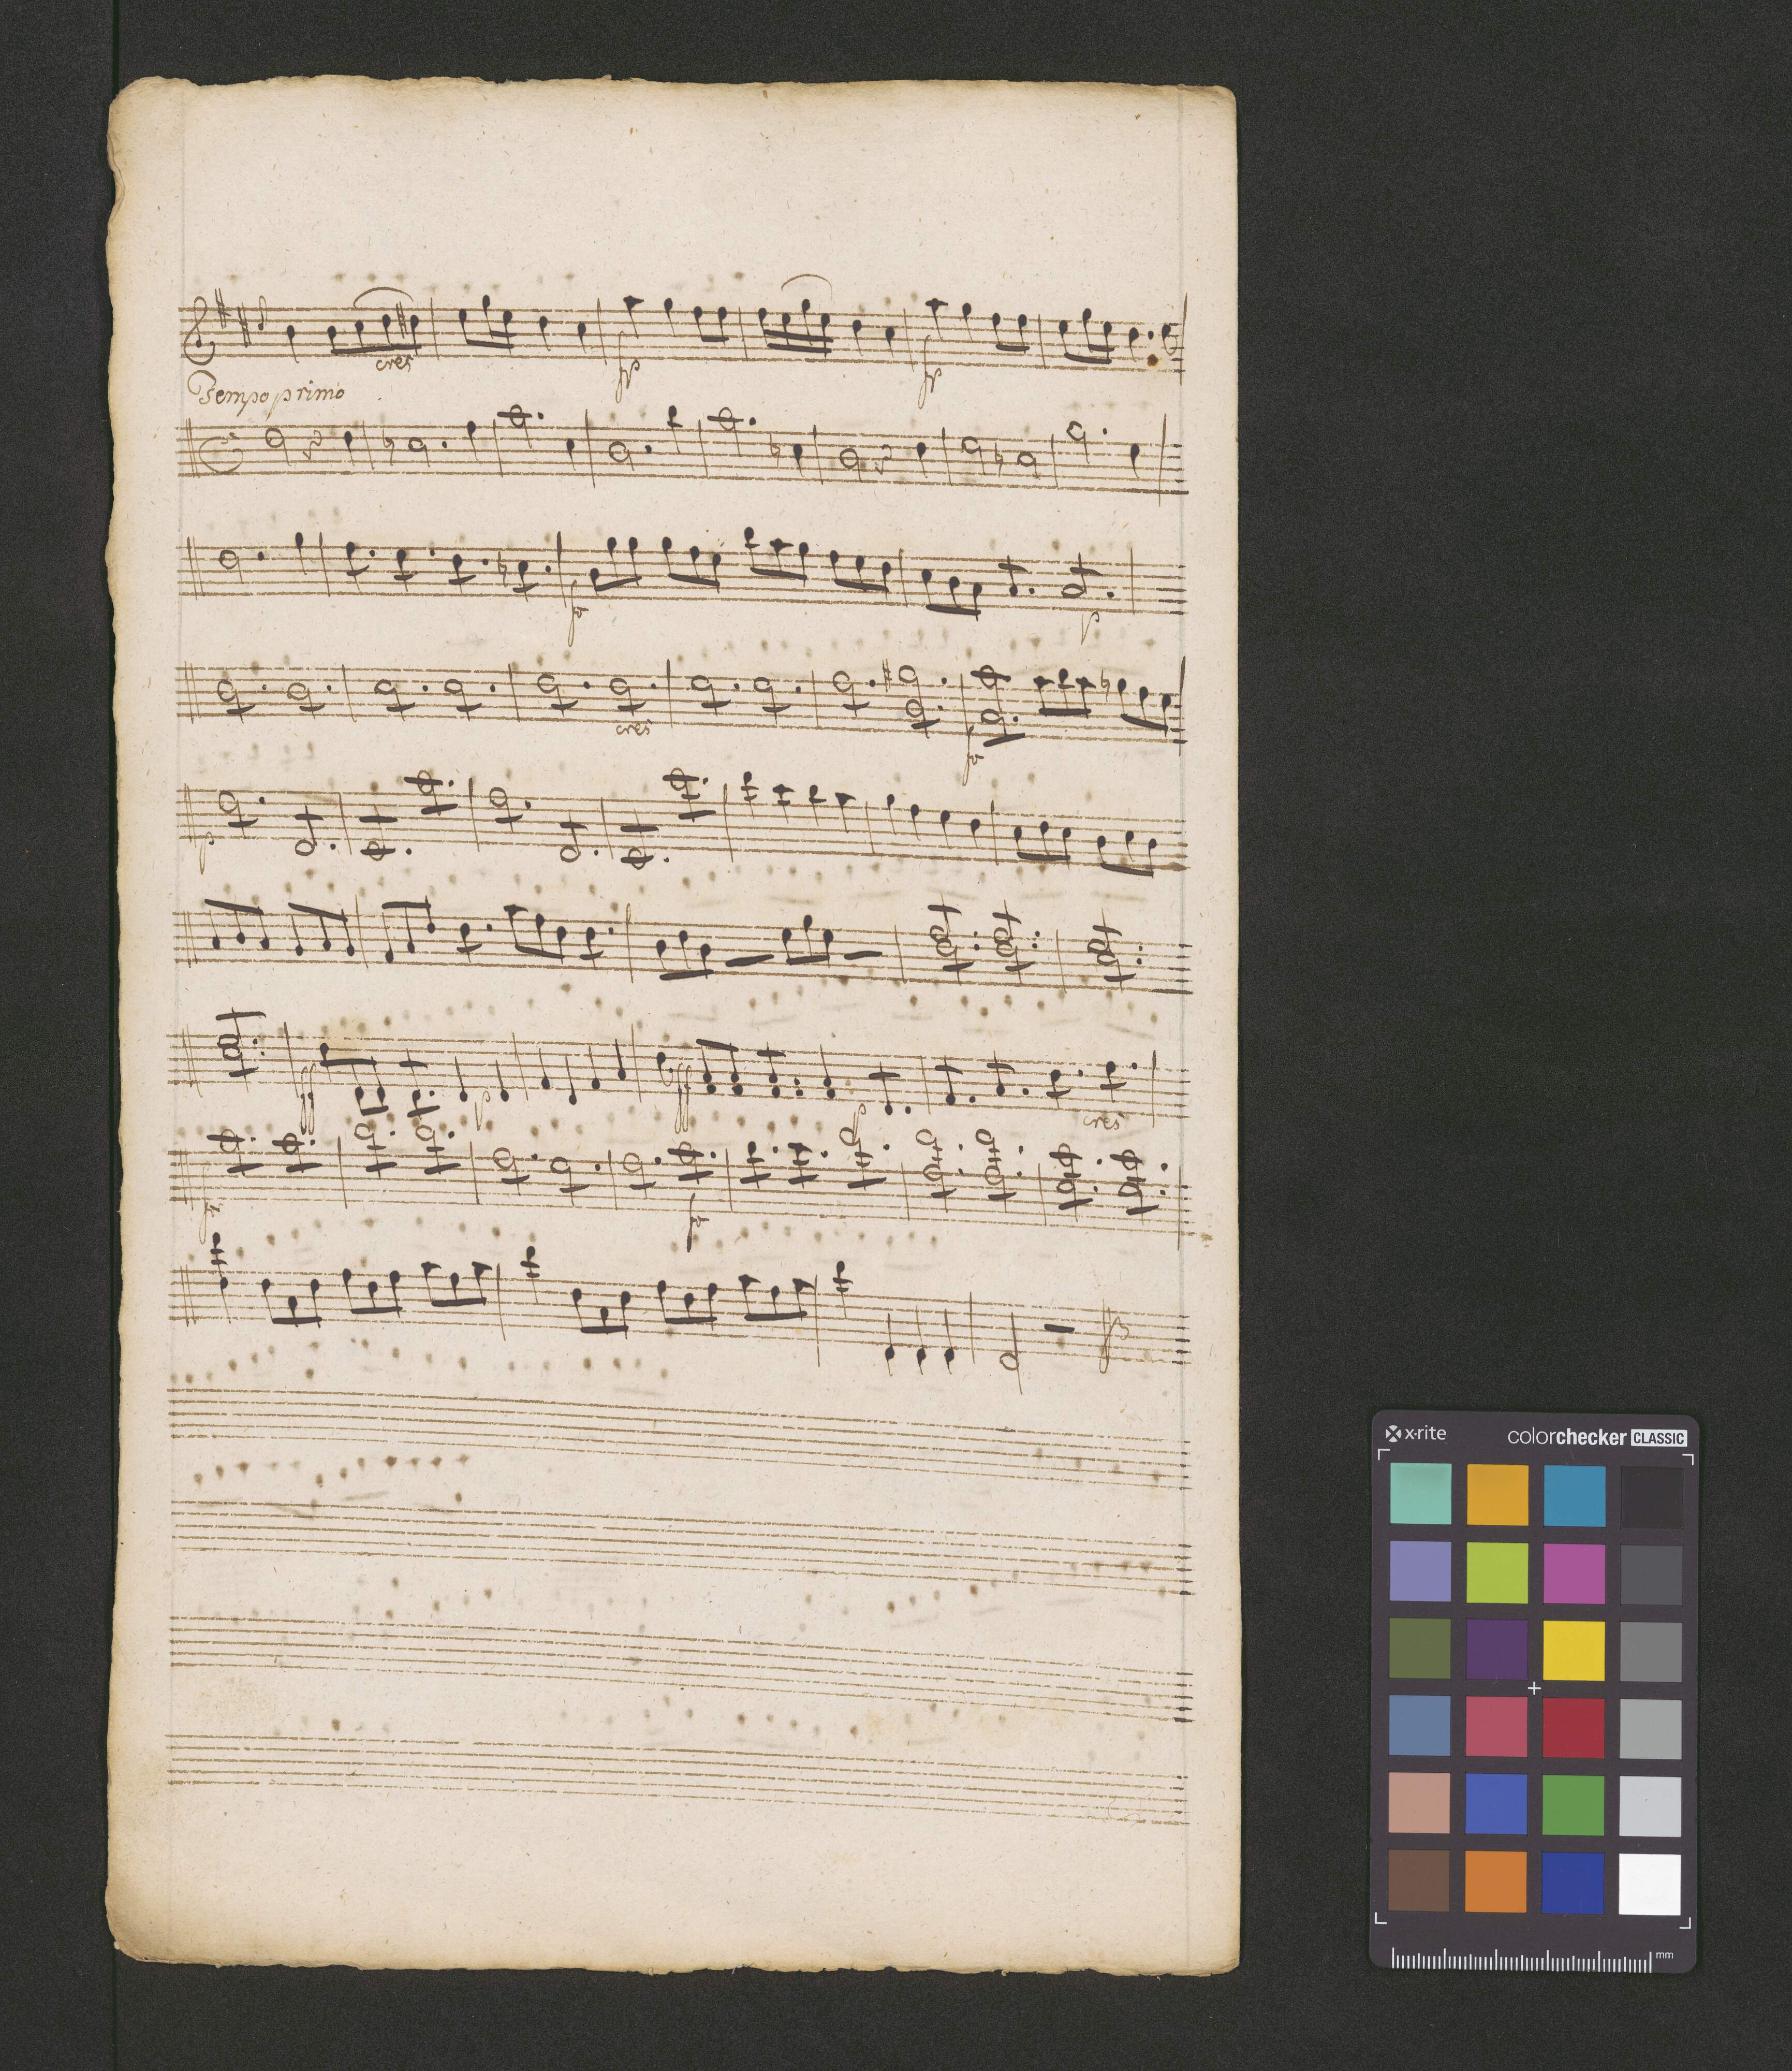 cres
fp
fp
Tempo primo
fo
p
cres
fo
p
ff
p
ff
p
cres
fo
fo
x·rite
colorchecker CLASSIC
mm